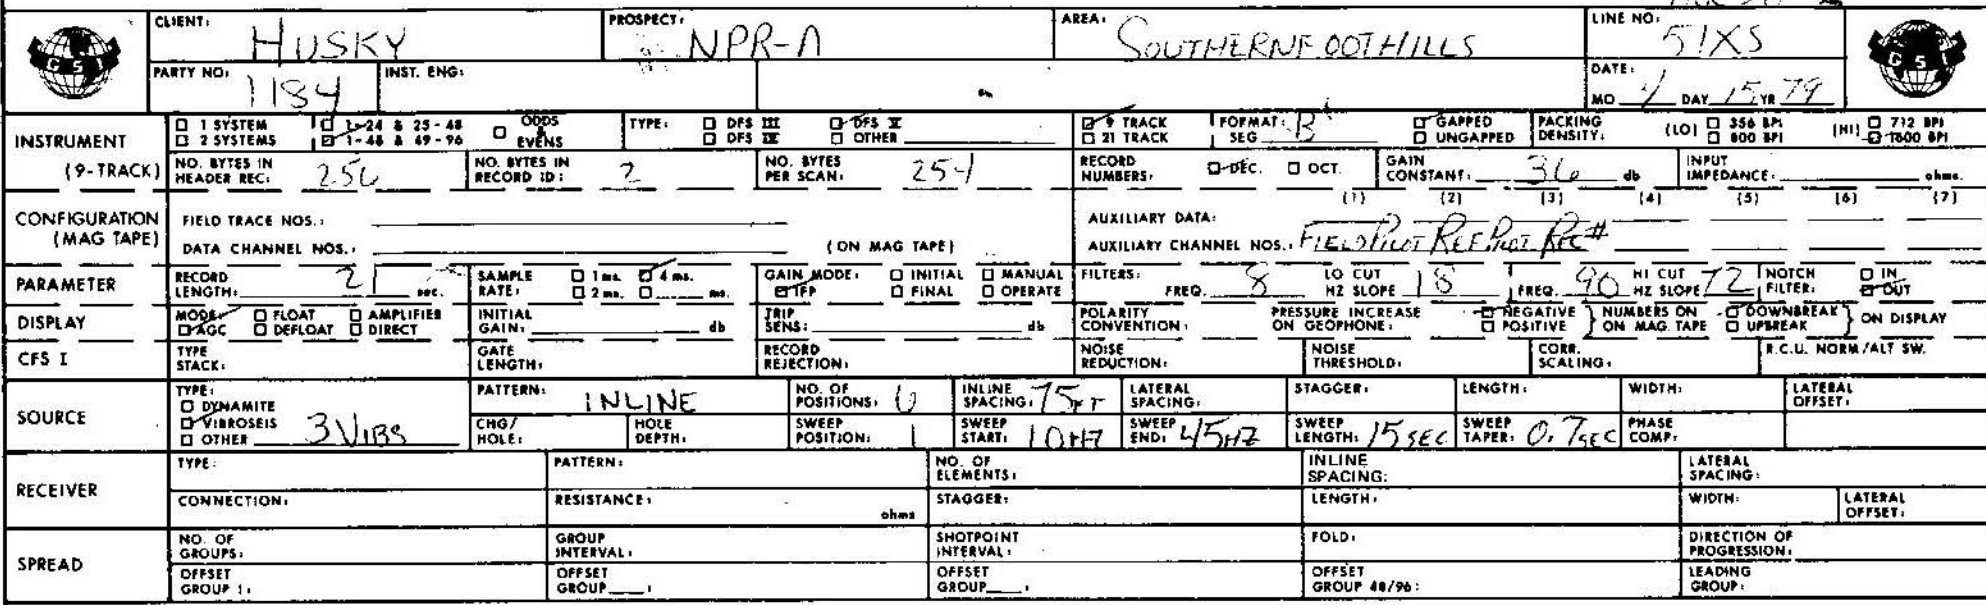 CLIENT: HUSKY PROSPECT: NPR-A AREA: SOUTHERN FOOTHILLS LINE NO: 51XS
GSI GSI
PARTY NO: 1184 INST. ENG: DATE: MO 4 DAY 15 YR 79
INSTRUMENT (9-TRACK)
1 SYSTEM 1-24 & 25-48 ODDS & EVENS TYPE: DFS III DFS V 9 TRACK FORMAT: SEG B GAPPED PACKING DENSITY: (LO) 356 BPI (HI) 712 BPI
2 SYSTEMS 1-48 & 49-96 DFS IV OTHER 21 TRACK UNGAPPED 800 BPI 1600 BPI
NO. BYTES IN HEADER REC: 256 NO. BYTES IN RECORD ID: 2 NO. BYTES PER SCAN: 254 RECORD NUMBERS: DEC. OCT. GAIN CONSTANT: 36 db INPUT IMPEDANCE: ohms.
CONFIGURATION (MAG TAPE)
(1) (2) (3) (4) (5) (6) (7)
FIELD TRACE NOS.: AUXILIARY DATA:
DATA CHANNEL NOS.: (ON MAG TAPE) AUXILIARY CHANNEL NOS.: FIELD PILOT REF PILOT REC #
PARAMETER
RECORD LENGTH: 21 sec. SAMPLE RATE: 1 ms. 4 ms. 2 ms. ms. GAIN MODE: INITIAL MANUAL IFP FINAL OPERATE FILTERS: FREQ. 8 LO CUT HZ SLOPE 18 FREQ. 90 HI CUT HZ SLOPE 72 NOTCH FILTER: IN OUT
DISPLAY
MODE: FLOAT AMPLIFIER AGC DEFLOAT DIRECT INITIAL GAIN: db TRIP SENS: db POLARITY CONVENTION: PRESSURE INCREASE ON GEOPHONE: NEGATIVE POSITIVE } NUMBERS ON ON MAG. TAPE DOWNBREAK UPBREAK } ON DISPLAY
CFS I TYPE STACK: GATE LENGTH: RECORD REJECTION: NOISE REDUCTION: NOISE THRESHOLD: CORR. SCALING: R.C.U. NORM/ALT SW.
SOURCE
TYPE: DYNAMITE VIBROSEIS OTHER 3 VIBS
PATTERN: INLINE NO. OF POSITIONS: INLINE SPACING: 75 FT LATERAL SPACING: STAGGER: LENGTH: WIDTH: LATERAL OFFSET:
CHG/HOLE: HOLE DEPTH: SWEEP POSITION: 1 SWEEP START: 10 HZ SWEEP END: 45 HZ SWEEP LENGTH: 15 SEC SWEEP TAPER: 0.7 SEC PHASE COMP:
RECEIVER
TYPE: PATTERN: NO. OF ELEMENTS: INLINE SPACING: LATERAL SPACING:
CONNECTION: RESISTANCE: ohms STAGGER: LENGTH: WIDTH: LATERAL OFFSET:
SPREAD
NO. OF GROUPS: GROUP INTERVAL: SHOTPOINT INTERVAL: FOLD: DIRECTION OF PROGRESSION:
OFFSET GROUP 1: OFFSET GROUP ___: OFFSET GROUP ___: OFFSET GROUP 48/96: LEADING GROUP: